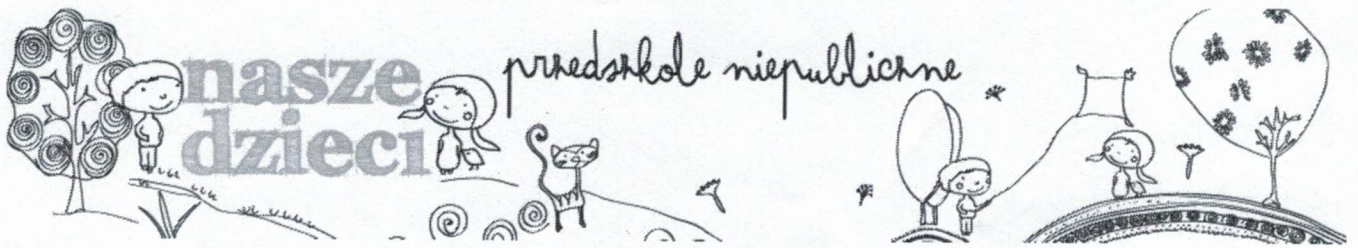 nasze
dzieci
przedszkole niepubliczne